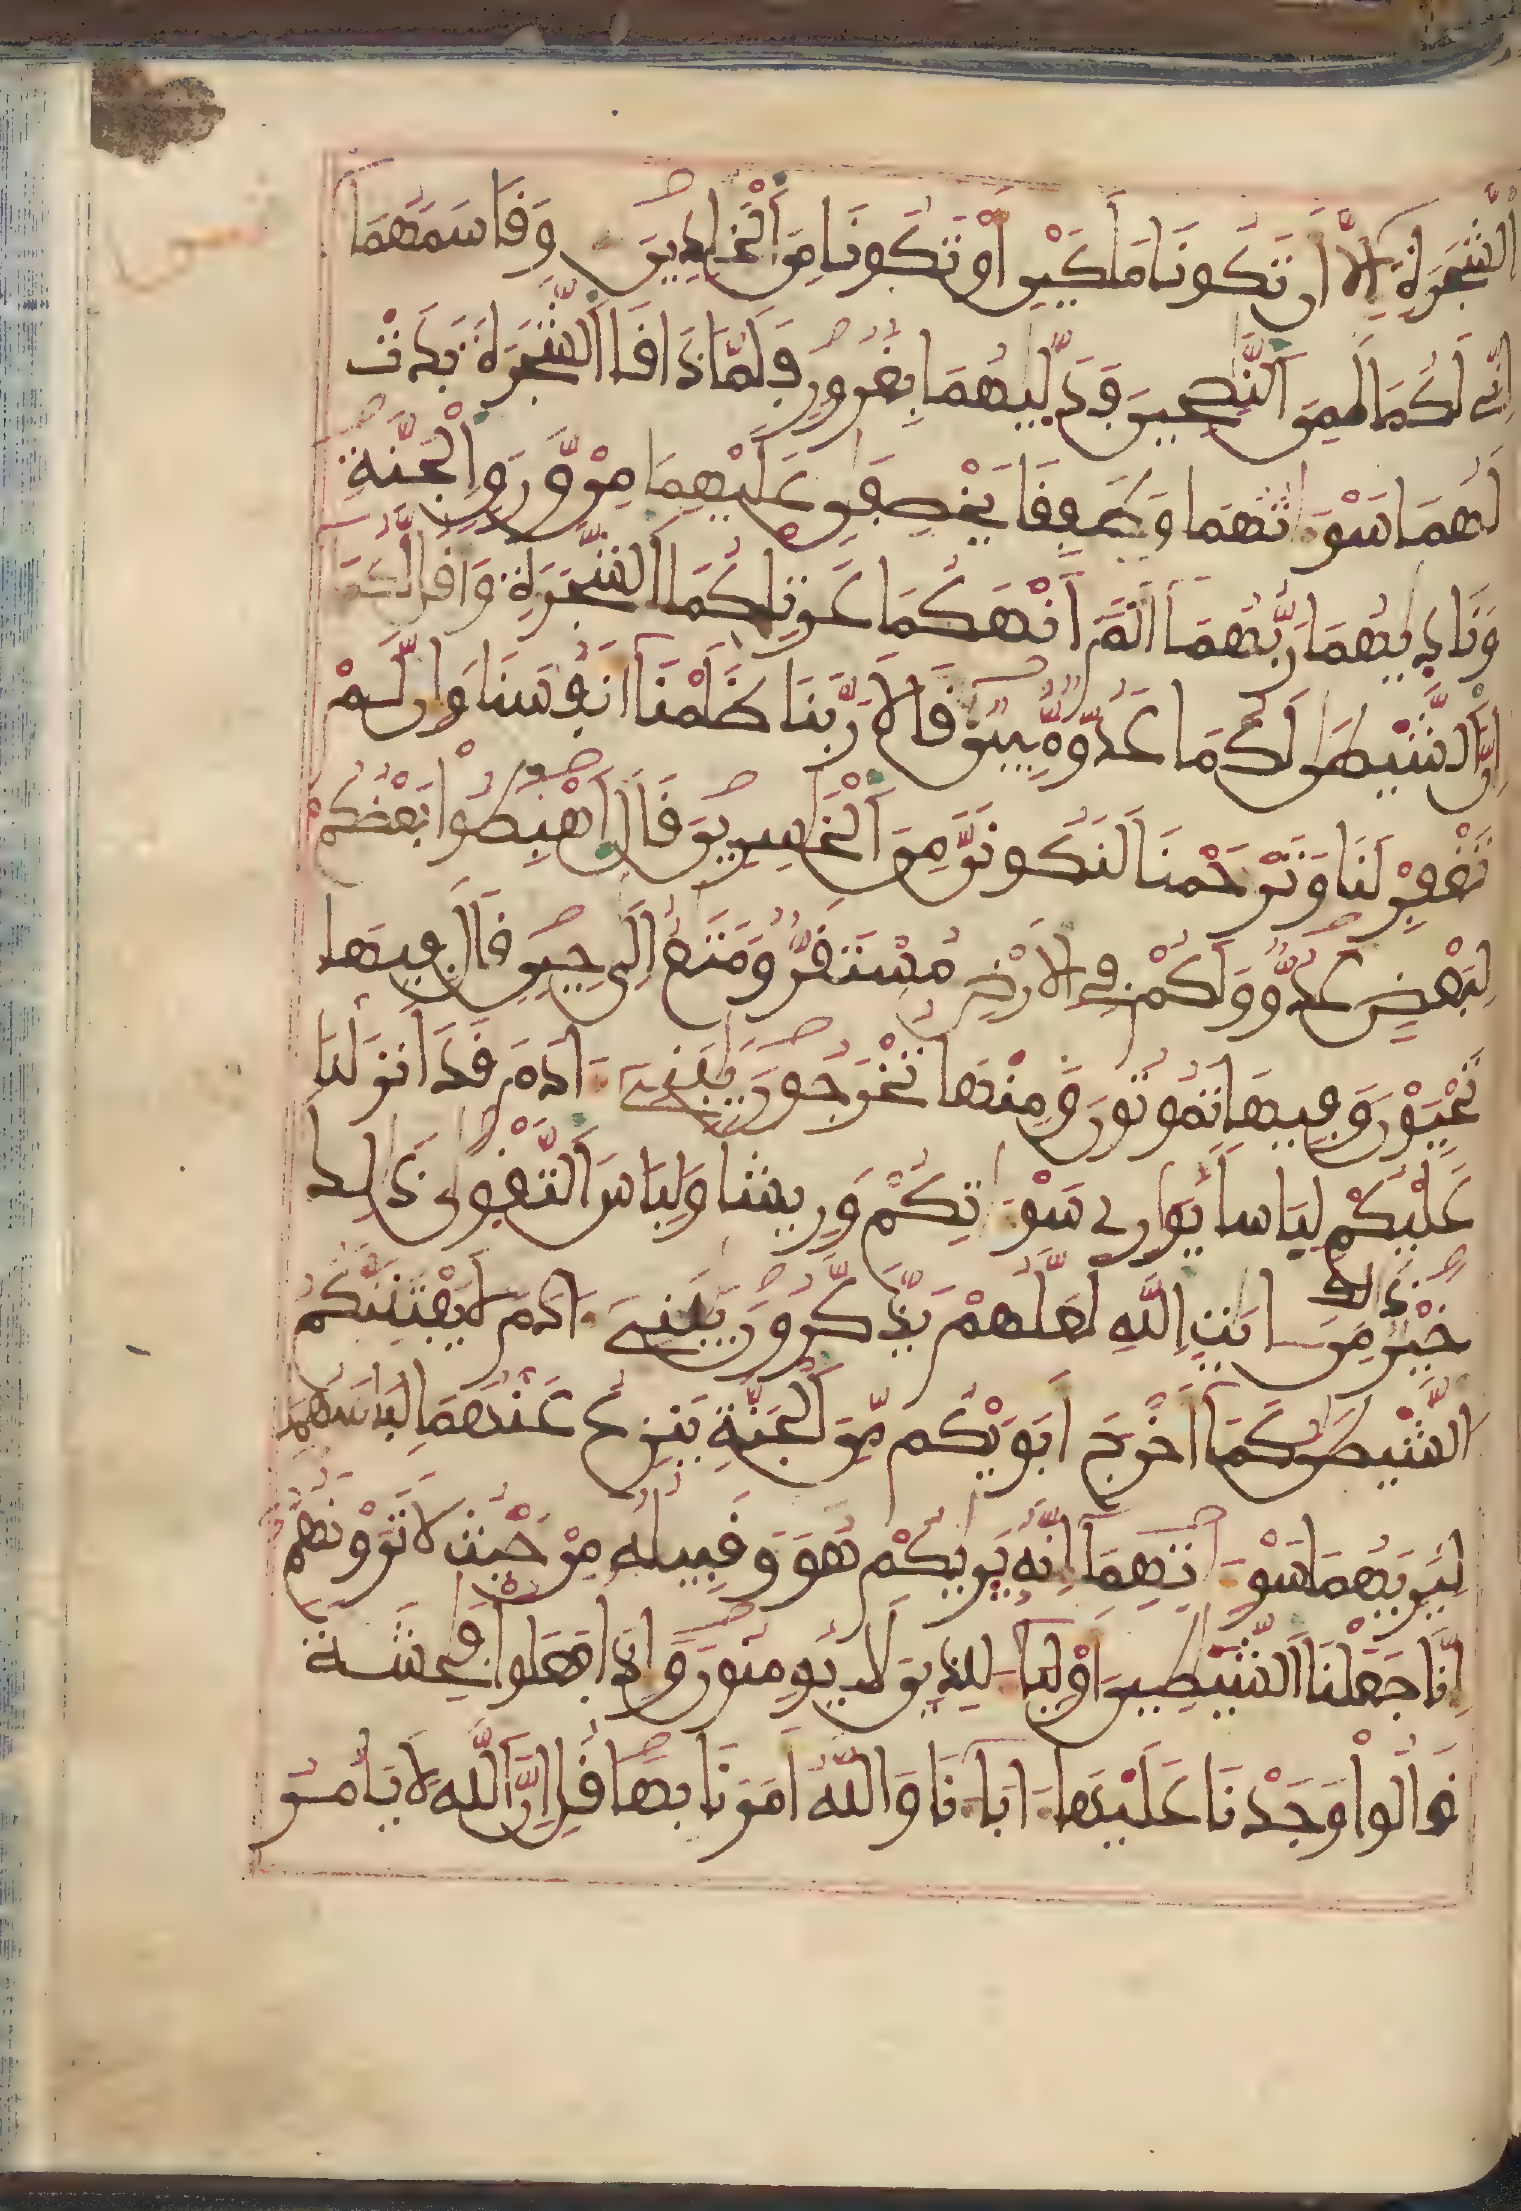 الشَّجَرَةِ إِلَّا أَن تَكُونَا مَلَكَيْنِ أَوْ تَكُونَا مِنَ ٱلْخَٰلِدِينَ وَقَاسَمَهُمَا
إِنِّے لَكُمَا لَمِنَ ٱلنَّٰصِحِينَ فَدَلّٰيهُمَا بِغُرُورٍ فَلَمَّا ذَاقَا ٱلشَّجَرَةَ بَدَتْ
لَهُمَا سَوْءَٰتُهُمَا وَطَفِقَا يَخْصِفَٰنِ عَلَيْهِمَا مِنْ وَّرَقِ ٱلْجَنَّةِ
وَنَادٰيهُمَا رَبُّهُمَا أَلَمَ اَنْهَكُمَا عَن تِلْكُمَا ٱلشَّجَرَةِ وَأَقُل لَّكُمَا
إِنَّ ٱلشَّيْطَٰنَ لَكُمَا عَدُوٌّ مُّبِينٌ قَالَا رَبَّنَا ظَلَمْنَا أَنفُسَنَا وَإِن لَّمْ
تَغْفِرْ لَنَا وَتَرْحَمْنَا لَنَكُونَنَّ مِنَ ٱلْخَٰسِرِينَ قَالَ ٱهْبِطُوا بَعْضُكُمْ
لِبَعْضٍ عَدُوٌّ وَلَكُمْ فِے الَارْضِ مُسْتَقَرٌّ وَمَتَٰعٌ إِلَىٰ حِينٍ قَالَ فِيهَا
تَحْيَوْنَ وَفِيهَا تَمُوتُونَ وَمِنْهَا تُخْرَجُونَ يَٰبَنِے ءَادَمَ قَدَ اَنزَلْنَا
عَلَيْكُمْ لِبَاسا يُوَٰرِے سَوْءَٰتِكُمْ وَرِيشا وَلِبَاسَ ٱلتَّقْوىٰ ذَٰلِكَ
خَيْرٌ ذَٰلِكَ مِنَ ءَايَٰتِ ٱللَّهِ لَعَلَّهُمْ يَذَّكَّرُونَ يَٰبَنِے ءَادَمَ لَا يَفْتِنَنَّكُمُ
ٱلشَّيْطَٰنُ كَمَا أَخْرَجَ أَبَوَيْكُم مِّنَ ٱلْجَنَّةِ يَنزِعُ عَنْهُمَا لِبَاسَهُمَا
لِيُرِيَهُمَا سَوْءَٰتِهِمَا إِنَّهُ يَرٰيكُمْ هُوَ وَقَبِيلُهُ مِنْ حَيْثُ لَا تَرَوْنَهُمُ
إِنَّا جَعَلْنَا ٱلشَّيَٰطِينَ أَوْلِيَاءَ لِلذِينَ لَا يُومِنُونَ وَإِذَا فَعَلُوا فَٰحِشَةً
قَالُواْ وَجَدْنَا عَلَيْهَا ءَابَاءَنَا وَاللَّهُ أَمَرَنَا بِهَا قُلِ اِنَّ ٱللَّهَ لَا يَامُرُ